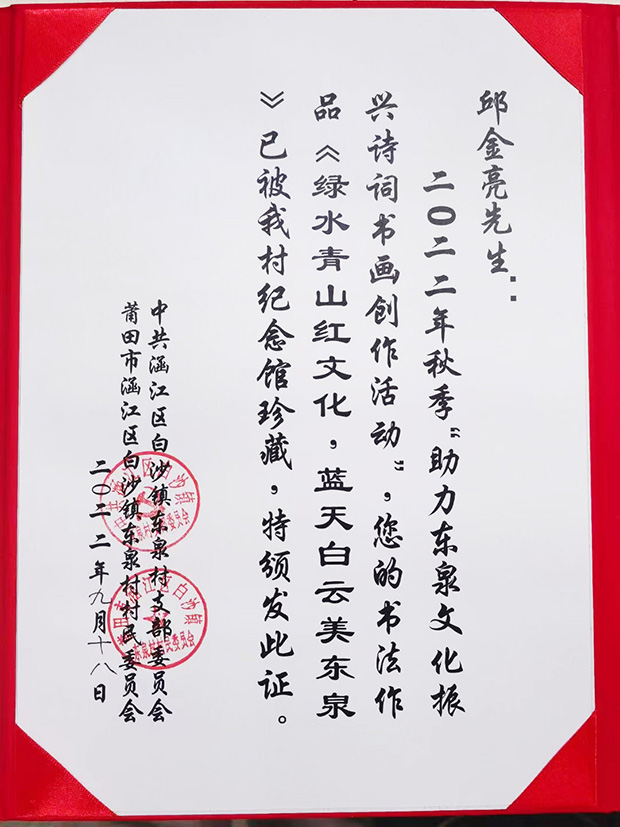 邱金亮先生：
二〇二二年秋季“助力东泉文化振
兴诗词书画创作活动”，您的书法作
品《绿水青山红文化，蓝天白云美东泉
》已被我村纪念馆珍藏，特颁发此证。
中共涵江区白沙镇东泉村支部委员会
莆田市涵江区白沙镇东泉村村民委员会
二〇二二年九月十八日